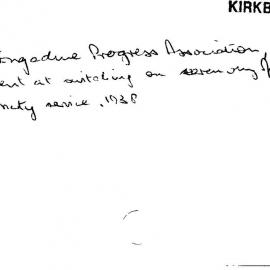 KIRKB
Engadine Progress Association,
ent at switching on ceremony of
ricity service, 1938